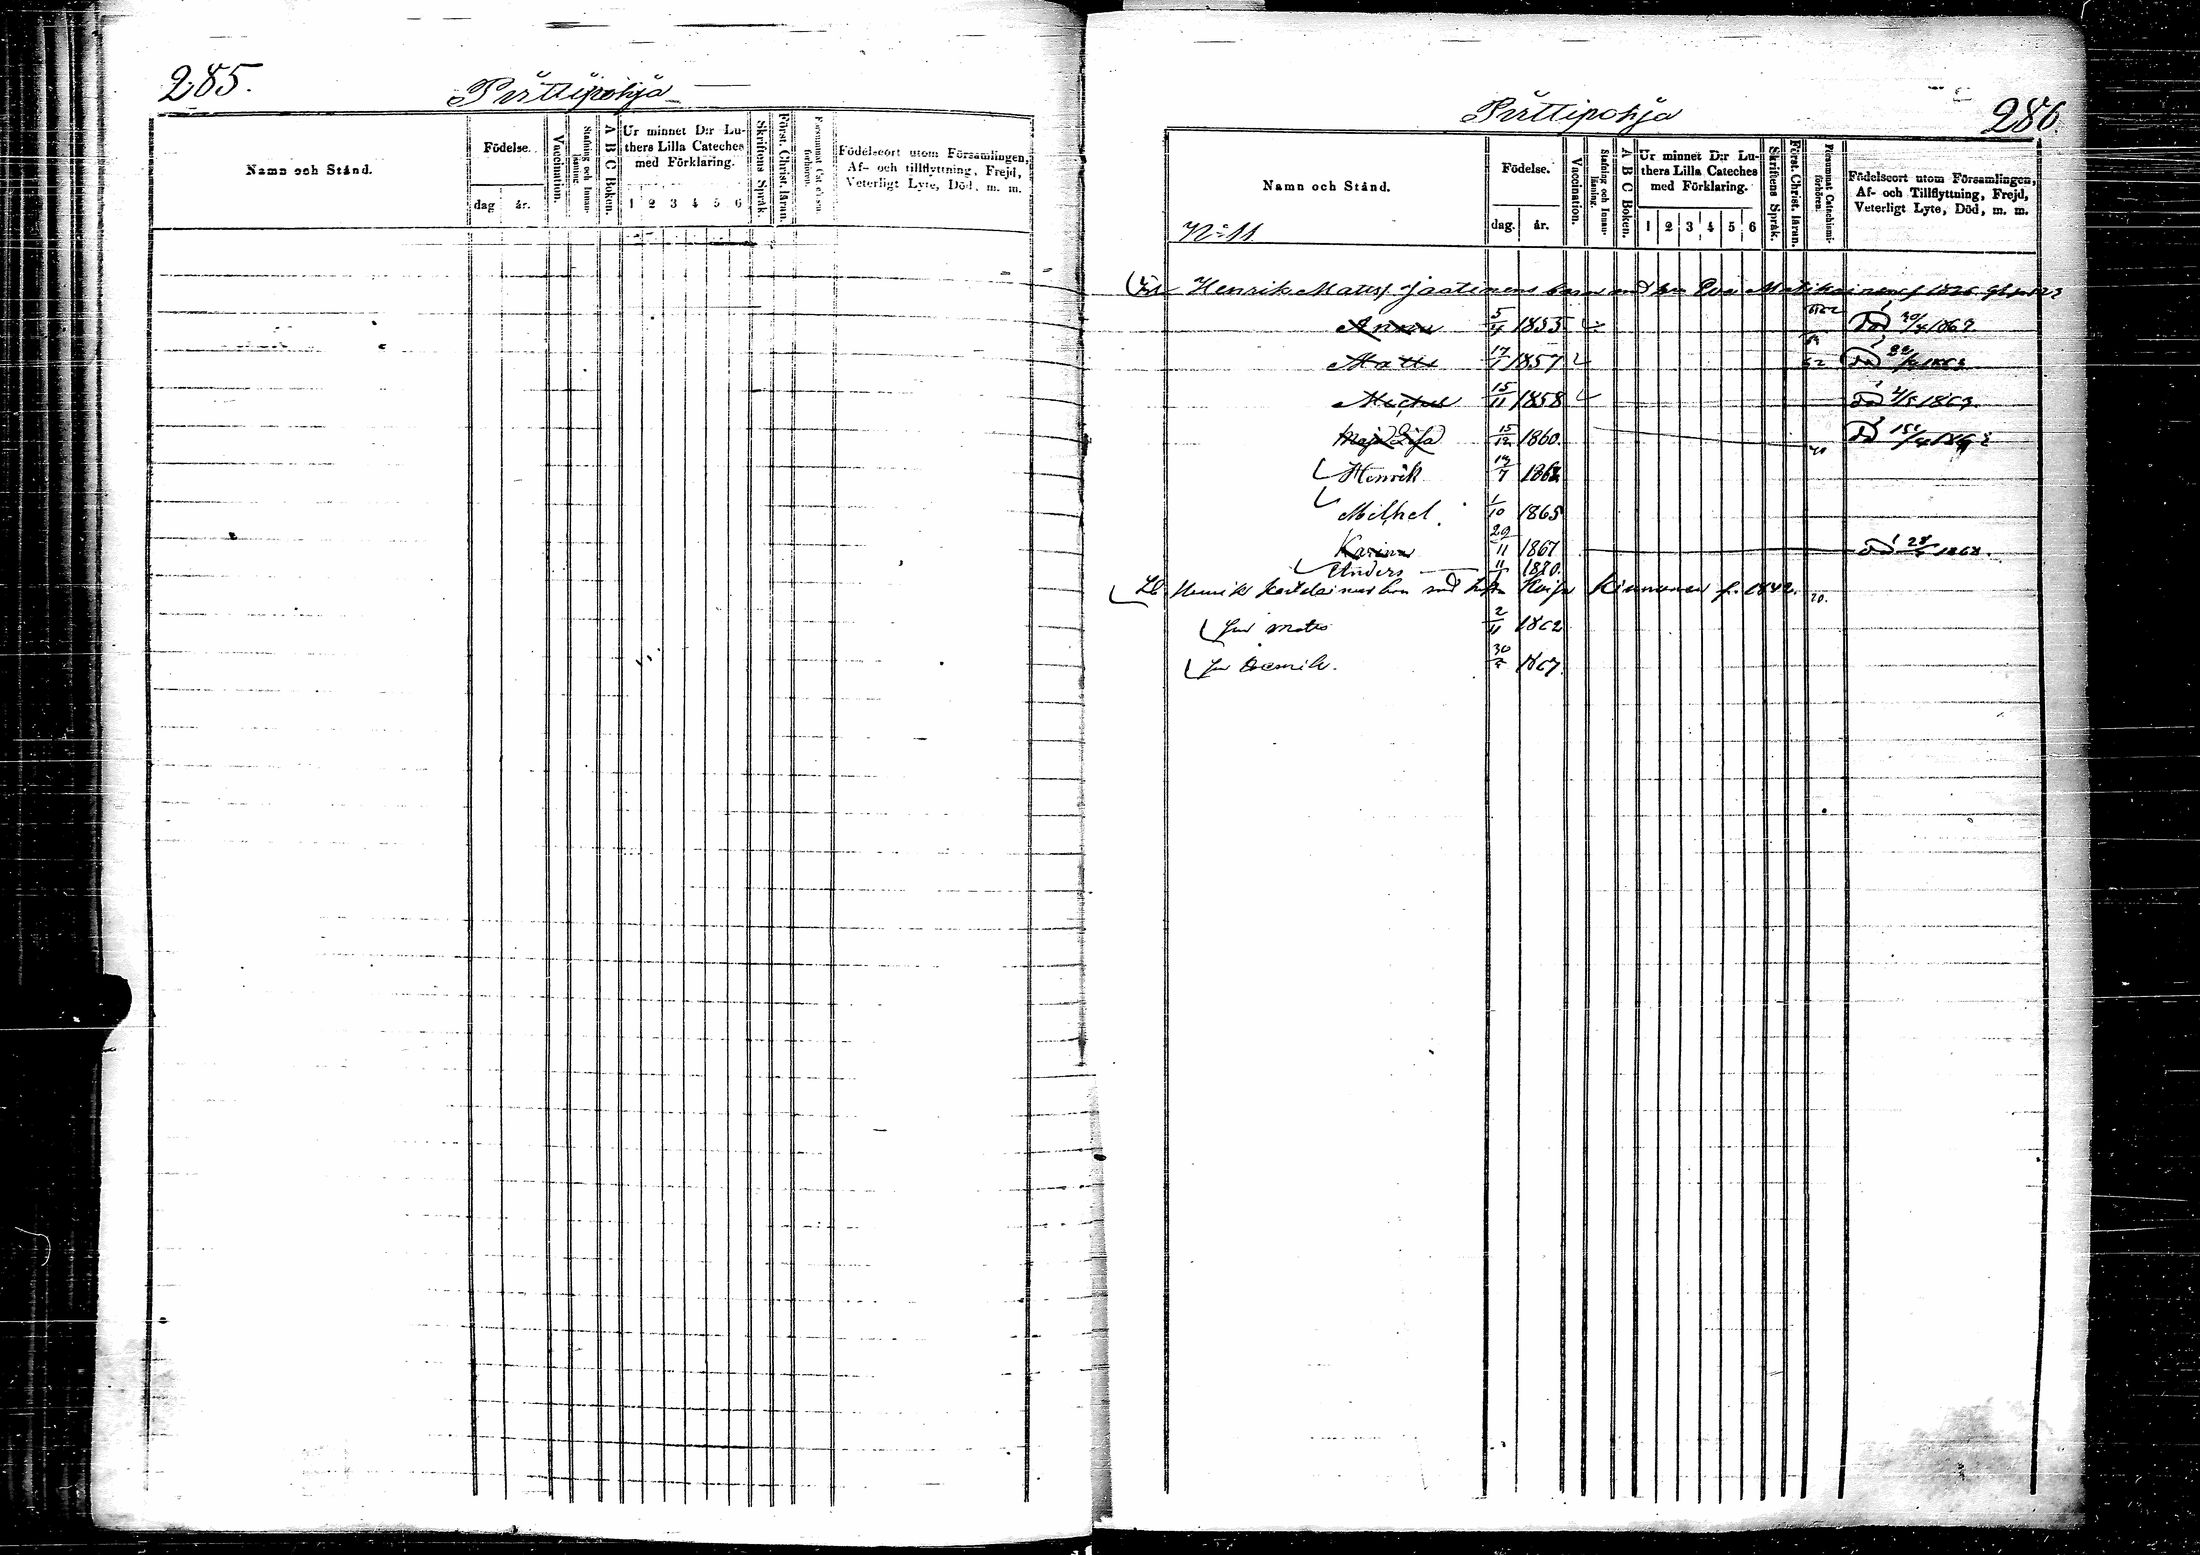 285.
Pirttipohja
Namn och Stånd.
Födelse.
dag
år.
Vaccination.
Stafning och Innan-läsning.
A B C Boken.
Ur minnet D:r Lu-
thers Lilla Cateches
med Förklaring.
1 2 3 4 5 6
Skriftens Språk.
Först. Christ. läran.
Försummat Catechismi-förhören.
Födelseort utom Församlingen,
Af- och tillflyttning, Frejd,
Veterligt Lyte, Död, m. m.
Pirttipohja
286.
Namn och Stånd.
Nº 11
Födelse.
dag. år.
Vaccination.
Stafning och Innan-läsning.
A B C Boken.
Ur minnet D:r Lu-
thers Lilla Cateches
med Förklaring.
1 2 3 4 5 6
Skriftens Språk.
Först. Christ. läran.
Försummat Catechismi-förhören.
Födelseort utom Församlingen,
Af- och Tillflyttning, Frejd,
Veterligt Lyte, Död, m. m.
Henrik Matts Jaatinens barn med Eva Matikainen f 1826
Anna 5/4 1855 död
Matts 17/1 1857 död
Michel 15/11 1858 död
Maja Lisa 15/12 1860. död
Henrik 14/7 1862
Mikhel 1/10 1865
Karina 29/11 1867 1868.
Anders 11/1 1870.
Henrik barn med Kaisa Kinnunen f. 1842. 20.
Mats 2/11 1862
Henrik. 30 1867.